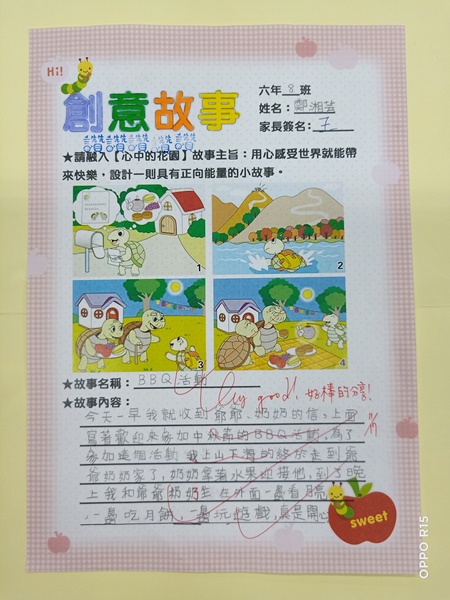 Hi!
創意故事
讚讚讚讚讚讚
六年8班
姓名：鄭湘芸
家長簽名：
★請融入【心中的花園】故事主旨：用心感受世界就能帶
來快樂，設計一則具有正向能量的小故事。
1
2
3
4
★故事名稱：BBQ活動
Very good! 好棒的分享!
★故事內容：
今天一早我就收到爺爺、奶奶的信，上面
寫著歡迎來參加中秋節的BBQ活動，為了
參加這個活動我上山下海的終於走到爺
爺奶奶家了，奶奶拿著水果迎接他，到了晚
上我和爺爺奶奶坐在外面一邊看月亮
，一邊吃月餅，一邊玩遊戲，真是開心
sweet
OPPO R15